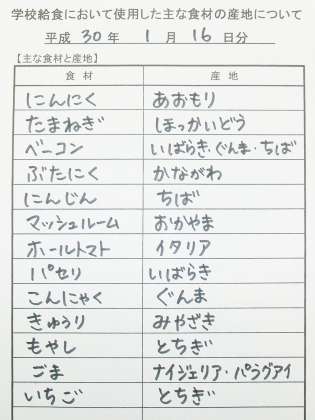 学校給食において使用した主な食材の産地について
平成 30 年 1 月 16 日分
【主な食材と産地】
食材 産地
にんにく あおもり
たまねぎ ほっかいどう
ベーコン いばらき・ぐんま・ちば
ぶたにく かながわ
にんじん ちば
マッシュルーム おかやま
ホールトマト イタリア
パセリ いばらき
こんにゃく ぐんま
きゅうり みやざき
もやし とちぎ
ごま ナイジェリア・パラグアイ
いちご とちぎ